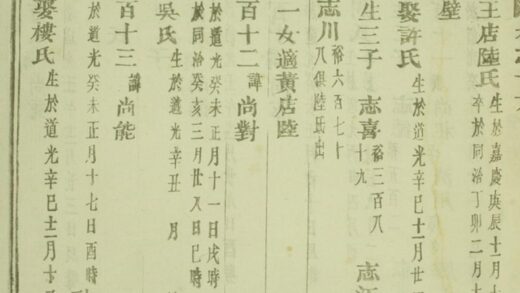 王店陸氏
生於嘉慶庚辰十一月
卒於同治丁卯二月十
壁
娶許氏
生於道光辛巳十一月廿
生三子 志喜 裕三百八十九 志
志川 裕六百七十八 俱陸氏出
一女適黃店陸
百十二 諱 尚對
於道光癸未正月十一日戌時
於同治癸亥三月廿八日巳時
吳氏 生於道光辛丑 月
百十三 諱 尚能
於道光癸未正月十七日酉時
娶樓氏 生於道光辛巳十二月十